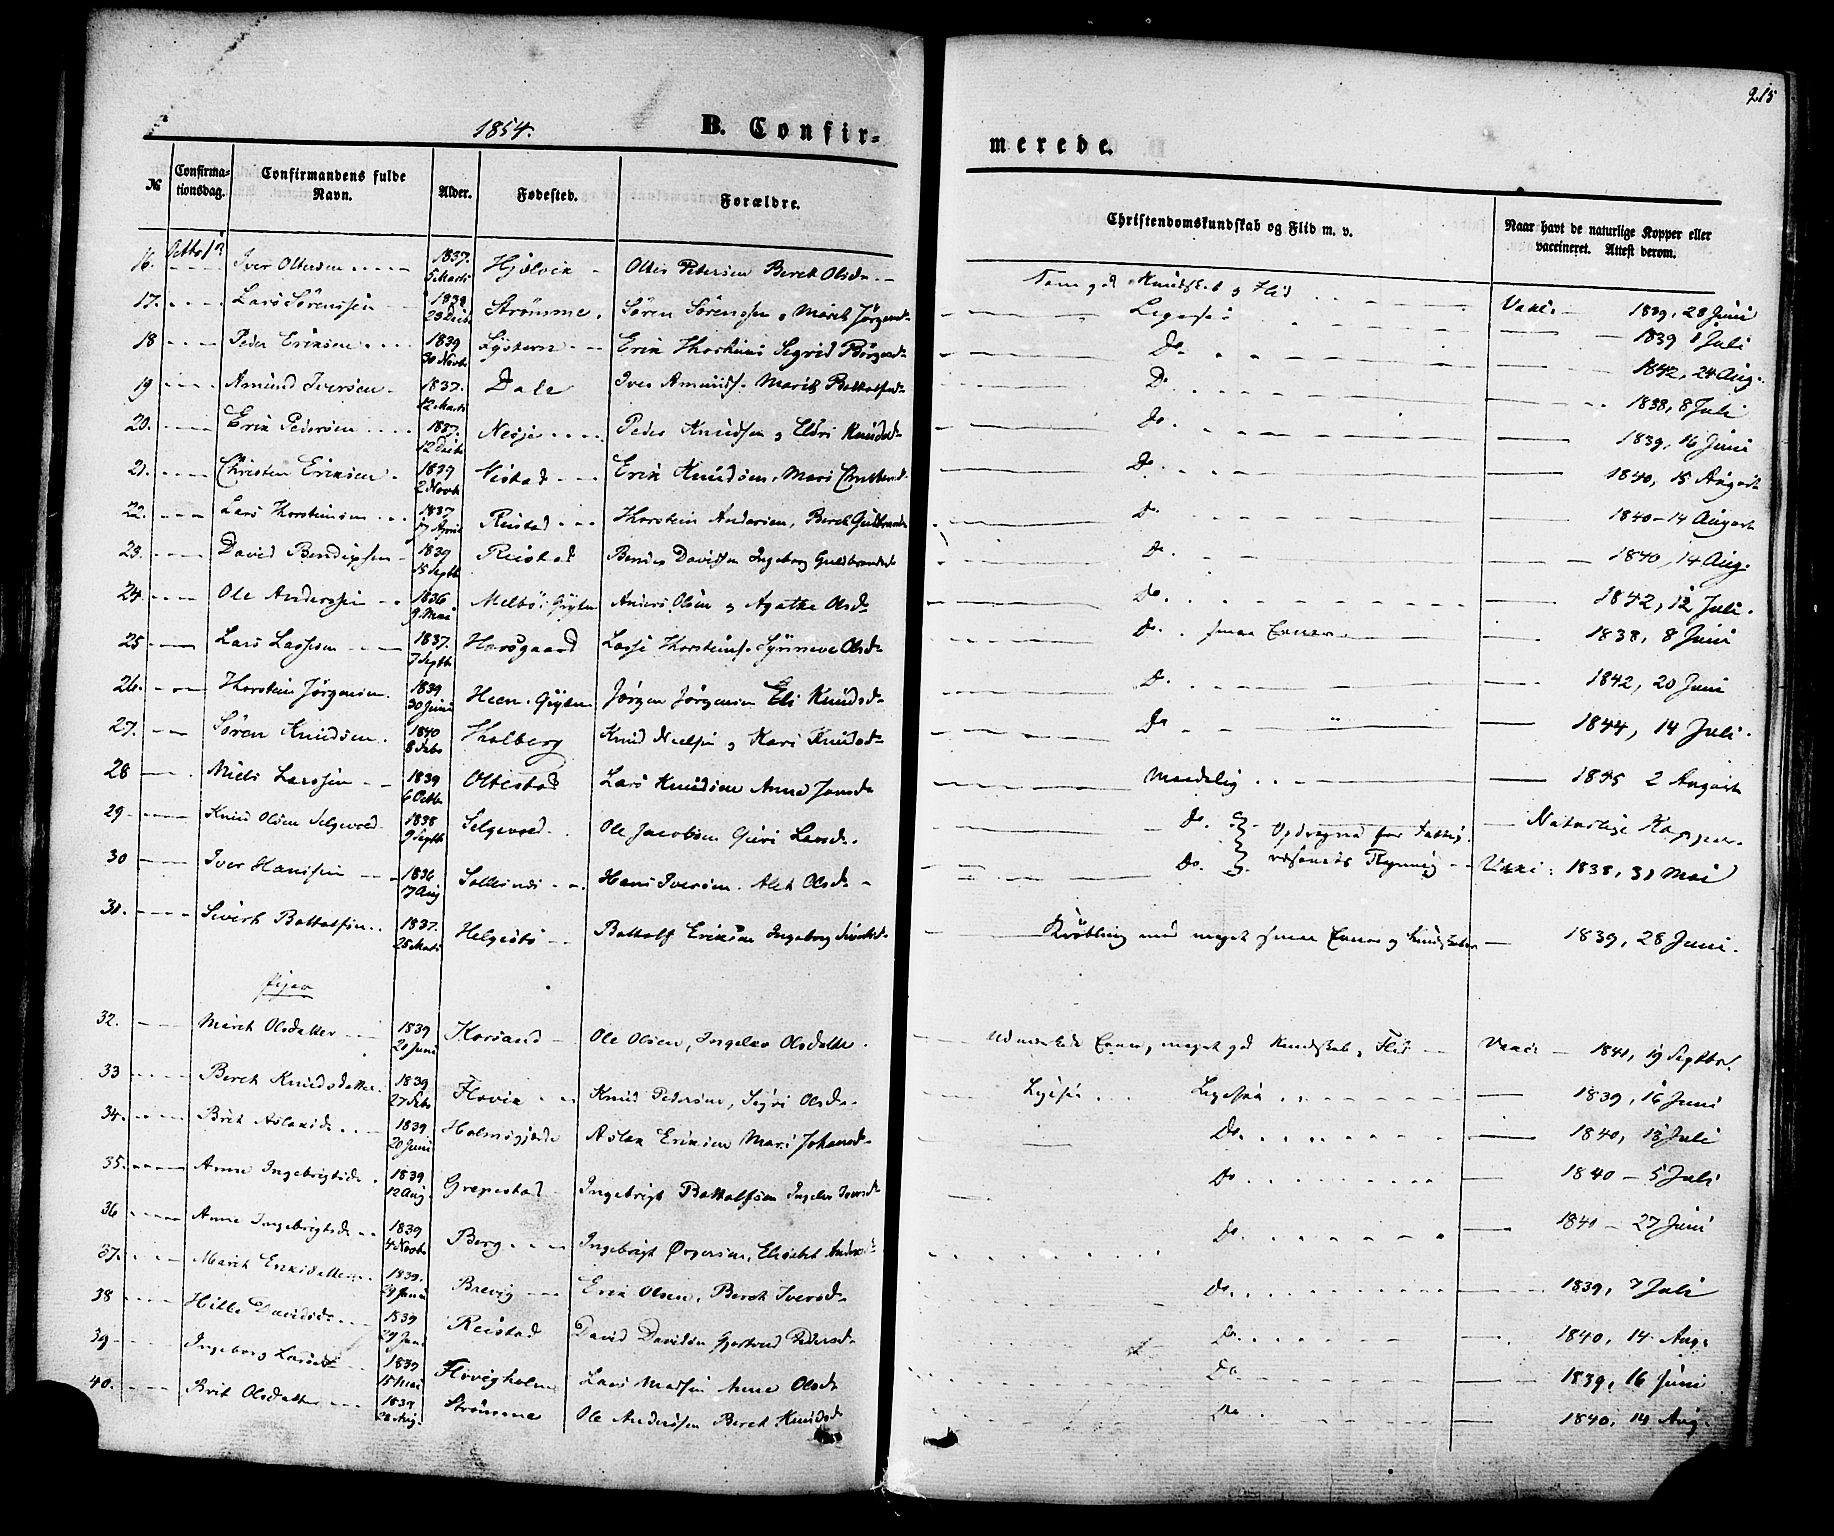 215
1854.
B. Confir-
merede.
№
Confirmationsdag.
Confirmandens fulde Navn.
Alder.
Fødested.
Forældre.
Christendomskundskab og Flid m. v.
Naar havt de naturlige Kopper eller vaccineret. Attest derom.
16. Octbr 1ste Iver Ottesen 1837. 5 Marts Hjelvik Ottes Petersen Beret Olsd. Tem. god Kundskab og Flid Vacc. 1839, 28 Juni
17. Lars Sørenssen 1839 23 Decbr Strømme. Søren Sørenssen, Marit Jørgensd. Ligesaa 1839 1 Juli
18 Peder Eriksen 1839 30 Novb Erik Thorsteins Segrid Børgesd. Do. 1842, 24 Aug.
19 Amund Iversen 1837. 12 Marts Dale Iver Amunds. Marit Bottolfsd. Do 1838, 8 Juli
20. Erik Pedersen 1837. 12 Decbr Nesje Peder Knudsen og Eldri Knudsd. Do. 1839, 16 Juni
21. Christen Eriksen 1837 2 Novb Nistad Erik Knudsen, Mari Christensd. Do. 1840, 15 August
22. Lars Thorsteinsen 1837 17 April Reistad Thorstein Andersen, Beret Guldbrands Do. 1840 - 14 August
23. David Bendixsen 1839 15 Septb Reistad Bendix Davidsen Ingeborg Guldbrandsd. Do. 1840, 14 Aug.
24. Ole Anderssen 1836 9 Mai Melbø i Grytten Anders Olsen og Agathe Olsd. Do. 1842, 12 Juli.
25 Lars Lassesen 1837. 7 Septb Horsgaard Lasse Thorsteins. Synneve Olsd. Do. smaa Evner. 1838, 8 Juni
26. Thorstein Jørgensen. 1839 30 Juni Heen. Grytten Jørgen Jørgensen Eli Knudsd. Do. 1842, 20 Juni
27. Søren Knudsen. 1840 8 Febr Tholberg Knud Nielsen og Kari Knudsd. Do 1844, 14 Juli.
28 Niels Larssen 1839 6 Octbr Oltestad Lars Knudsen Anne Jonsd. Maadelig 1845 2 August
29. Knud Olsen Selgevold. 1838 9 Septb Selgevold. Ole Jacobsen Guri Larsd. Do. Opdragne for Fattig- Naturlige Kopper.
30 Iver Hanssen 1836 17 Aug Hans Iversen. Alet Olsd. Do. væsenets Regning Vacci: 1838, 31 Mai
31. Sivert Bottolfsen 1837. 25 Marts Helgebø Bottolf Eriksen Ingeborg Sivertsd. Krøbling med meget smaa Evner og Kundskaber 1839, 28 Juni.
Piger
32. Marit Olsdatter 1839 20 Juni Korsand Ole Olsen, Ingeleiv Olsdatter. Udmærkede Evner, meget god Kundskab, Flid Vacci 1841, 19 Septbr.
33 Beret Knudsdatter. 1839 27 Febr Flovik Knud Pedersen, Sigri Olsd. Ligesaa Ligesaa 1839, 16 Juni
34. Brit Aslaksd. 1839 20 Juni Holmsgjerde Aslak Eriksen Mari Johansd. Do. 1840, 13 Juli
35. Anne Ingebrigtsd. 1839 12 Aug. Grepestad Ingebrigt Bottolfsen Ingeleiv Iversd. Do. 1840 - 5 Juli
36 Anne Ingebrigtsd. 1839 4 Novb Berg Ingebrigt Ørgersen, Elisabet Anders Do. 1840 - 27 Juni
37. Marit Eriksdatter 1839. 29 Juni Brevig Erik Olsen, Beret Iversd. Do. 1839, 7 Juli
38 Hilles Davidsd. 1839 29 Juni Reistad David Davidsen Gjertrud Pedersd. Do. 1840, 14 Aug.
39 Ingeborg Larsdt 1839 15 Mai Flovigholm Lars Madsen Anne Olsd. Do 1839, 16 Juni
40. Brit Olsdatter 1839 28 Aug. Strømme Ole Anderssen Beret Knudsd. Do 1840, 14 Aug.